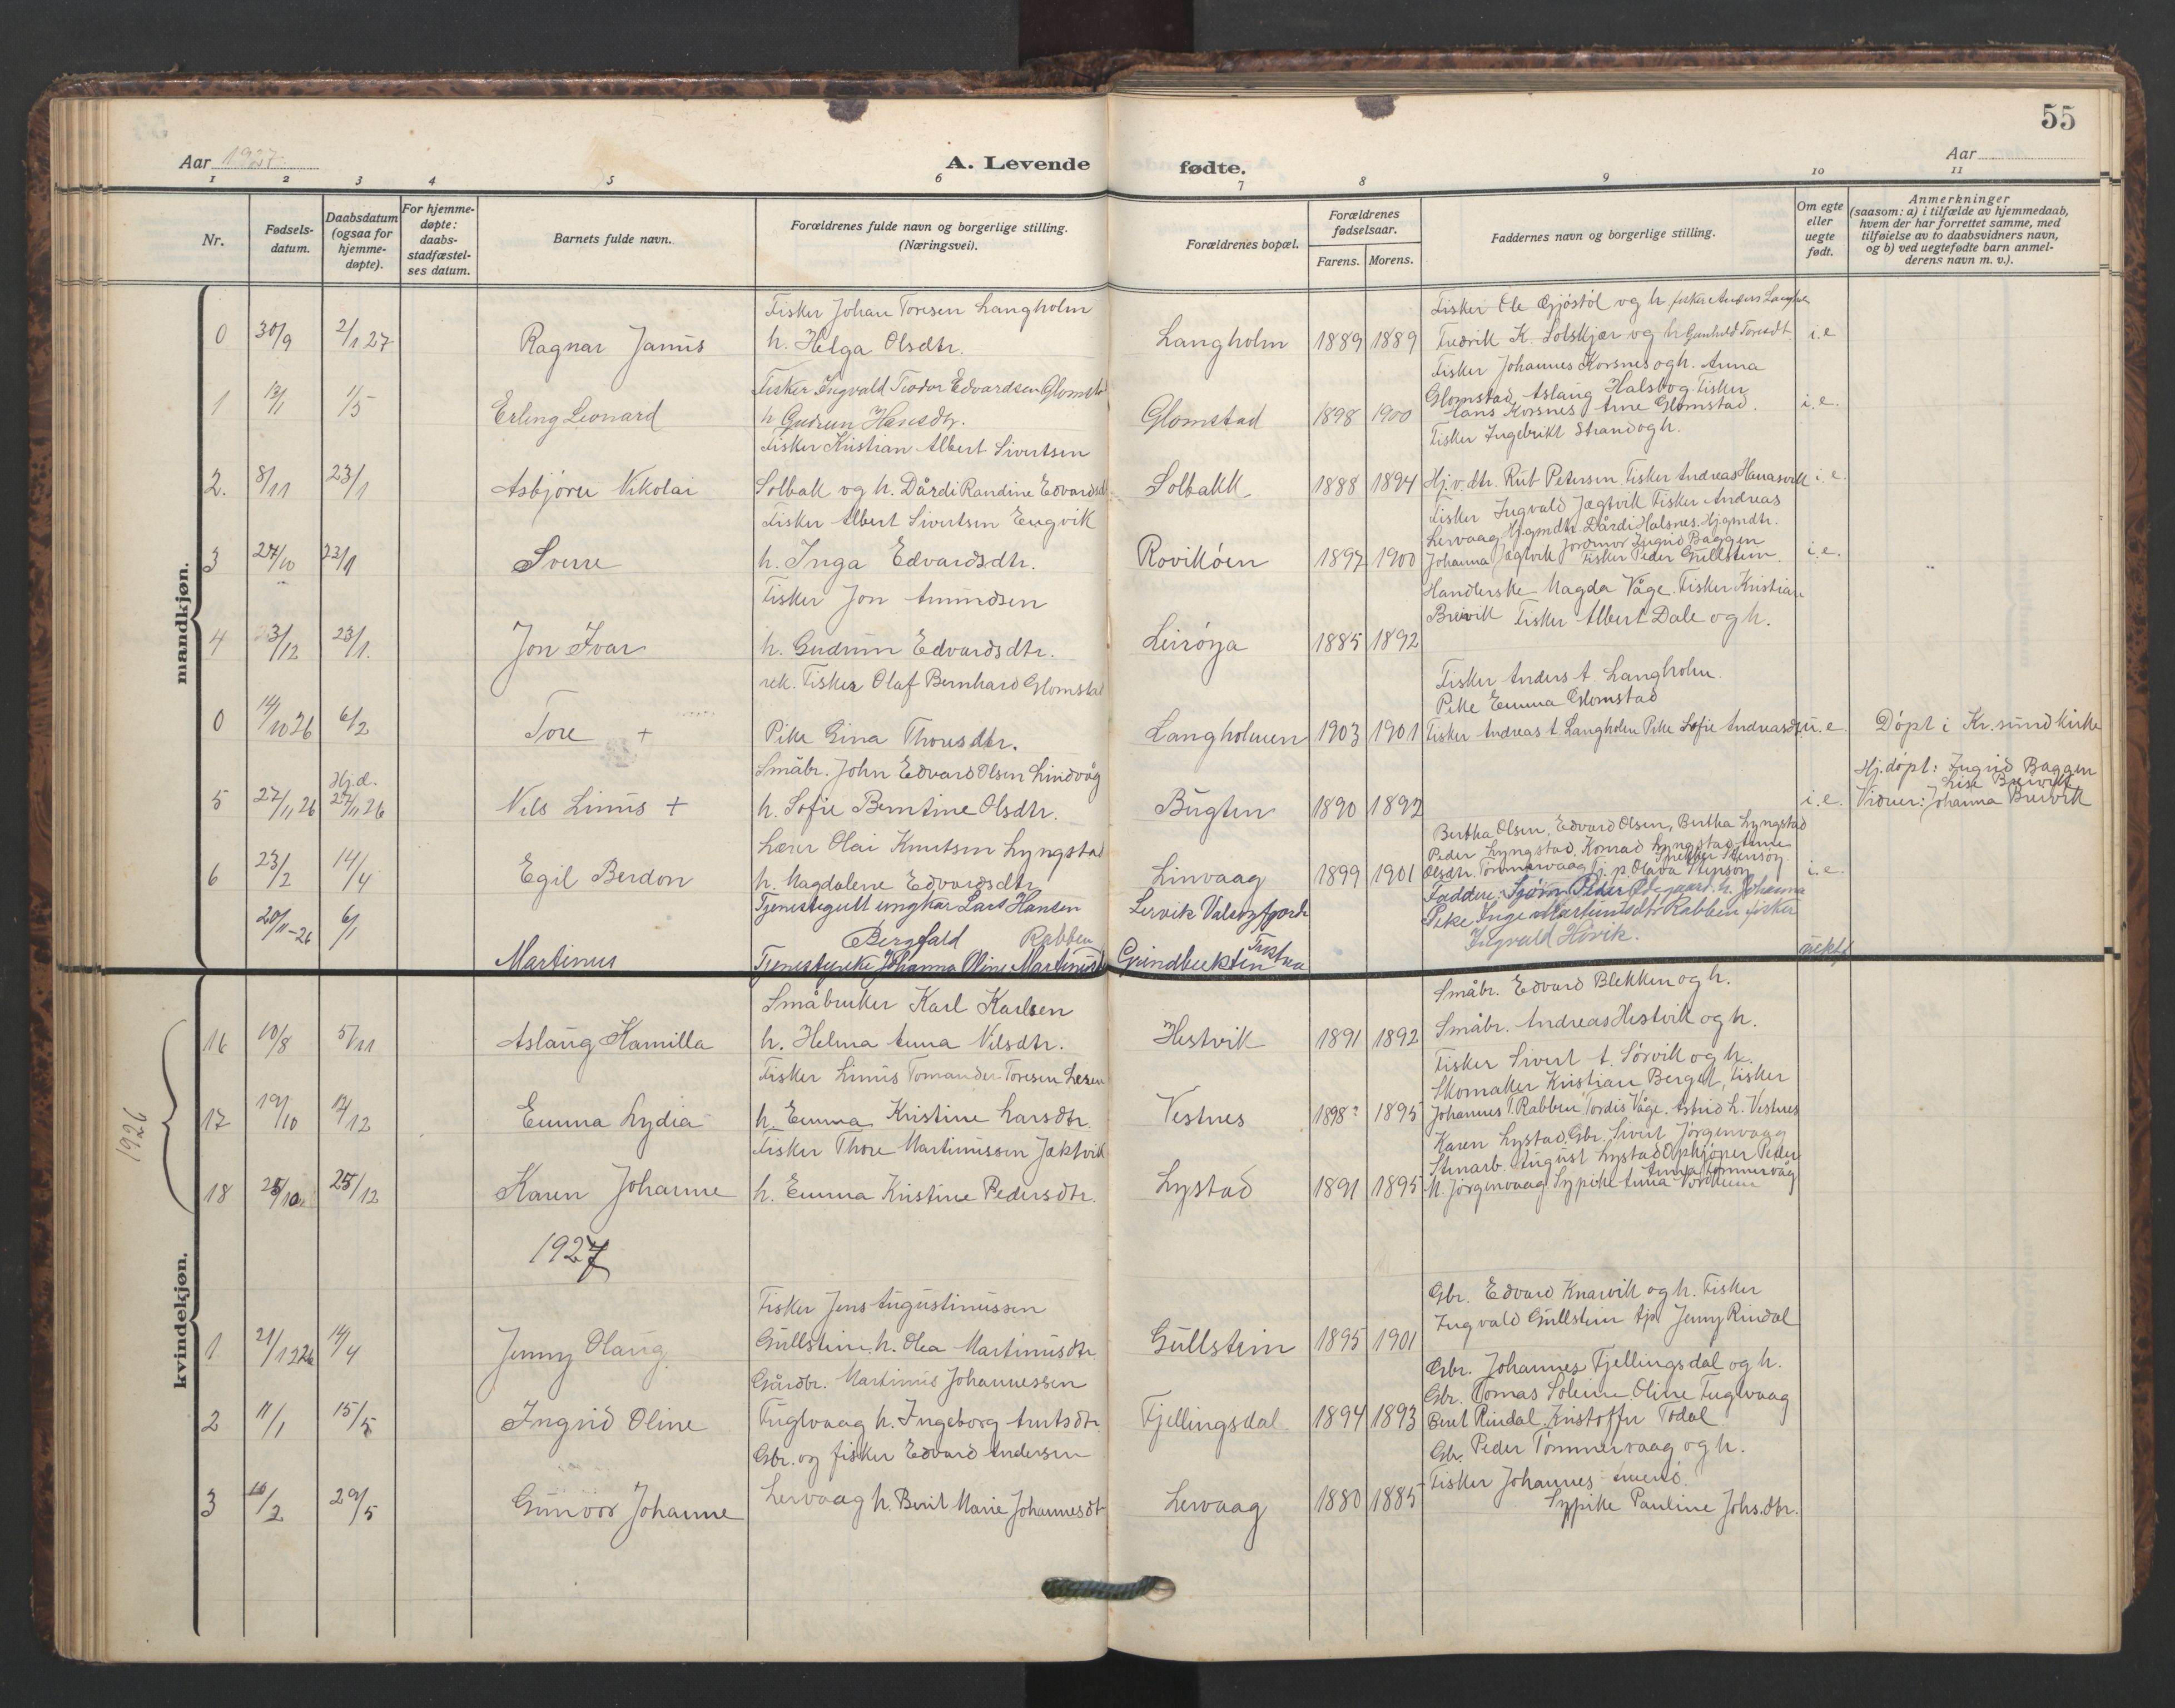 55
Aar 1927.
A. Levende
fødte.
Aar
1 2 3 4 5 6 7 8 9 10 11
Nr.
Fødsels-
datum.
Daabsdatum
(ogsaa for
hjemme-
døpte).
For hjemme-
døpte:
daabs-
stadfæstel-
ses datum.
Barnets fulde navn.
Forældrenes fulde navn og borgerlige stilling.
(Næringsvei).
Forældrenes bopæl.
Forældrenes
fødselsaar.
Farens. Morens.
Faddernes navn og borgerlige stilling.
Om egte
eller
uegte
født.
Anmerkninger
(saasom: a) i tilfælde av hjemmedaab,
hvem der har forrettet samme, med
tilføielse av to daabsvidners navn,
og b) ved uegtefødte barn anmel-
derens navn m. v.).
mandkjøn.
Fisker Johan Toresen Langholm
Fisker Ole Gjøstøl og h. fisker Anders
0 30/9 2/1 27 Ragnar Janus h. Helga Olsdtr. Langholm 1889 1889 Fredrik K. Solskjær og h Gunhild Toresdt. i.e
Fisker Johannes Korsnes og h. Anna
Fisker Ingvald Teodor Edvardsen
Glomstad Aslaug Halsbog. Fisker
1 1/5 Erling Leonard h Gudrun Hansdtr. Glomstad 1898 1900 Hans Korsnes Arne Glomstad. i.e.
Fisker Kristian Albert Sivertsen
Fisker Ingebrikt Strand og h.
2. 8/11 23/1 Asbjørn Nikolai Solbak og h. Dårdi Randine Solbakk 1888 1894 Hj.v.dtr. Rut Petersen. Fisker Andreas i.e.
Fisker Albert Sivertsen Engvik
Fisker Ingvald Jægtvik Fisker Andreas
Lervaag. Hj.gmdtr. Dårdi Halsnes. Hj.gmdtr.
3 27/10 23/1 Sverre h. Inga Edvardsdtr. Rovikøen 1897 1900 Johanna Jægtvik Jordmor Ingrid Baggen Fisker Peder Gullstein. i.e.
Fisker Jon Amundsen
Handlerske Magda Våge. Fisker Kristian
Breivik Fisker Albert Dale og h.
4 23/12 23/1. Jon Ivar h. Gudrun Edvardsdtr. Leirøya 1885 1892
rek. Fisker Olaf Bernhard Glomstad
Fisker Anders A. Langholm.
Pike Emma Glomstad
0 14/10 26 6/2 Tore + Pike Gina Thoresdtr. Langholmen 1903 1901 Fisker Andreas A. Langholm Pike Sofie u.e. Døpt i Kr.sund kirke
Småbr. John Edvard Olsen Lindvåg
Hj.d.
Hj.døpt: Ingrid Baggen
Lise Breivik
5 27/11 26 27/11 26 Nils Linus + h. Sofie Berntine Olsdtr. Bugten 1890 1892 i.e. Vidner: Johanna Breivik
Lærer Olai Knutsen Lyngstad
Bertha Olsen, Edvard Olsen, Bertha Lyngstad
Peder Lyngstad, Konrad Lyngstad, Anne
6 23/2 14/4 Egil Berdon h. Magdalene Edvardsdtr. Linvaag 1899 1901 Olsdtr. Tømmervaag Tj. p. Olava i.e.
Tjenestegutt ungkar Lars Hansen
Bergfald Rabben
Lervik Valsøyfjord
Faddere: Peder Ødegaard. h. Johanna
20/11-26 6/1 Pike Inge Martinusdtr Rabben fisker
Ingvald Hövik.
Martinus Tjenestepike Johanna Oline Grindbukten uekte
1926
Småbruker Karl Karlsen
Småbr. Edvard Blekken og h.
16 10/8 5/11 Aslaug Kamilla h. Helma Anna Nilsdtr. Hestvik 1891 1892 Småbr. Andreas Hestvik og h.
Fisker Linus Tomander Toresen
Fisker Sivert A. Sørvik og h.
Skomaker Kristian Berget, Fisker
17 19/10 12/12 Emma Lydia h. Emma Kristine Larsdtr. Vestnes 1898? 1895 Johannes T. Rabben Tordis Våge. Astrid L. Vestnes
Fisker Thore Martinussen Jaktvik
Karen Lystad. Gbr. Sivert Jørgenvaag
Stenarb. August Lystad Opkjøper Peder
18 25/10 25/12 Karen Johanne h. Emma Kristine Pedersdtr. Lystad 1891 1895 N. Jørgenvaag. Sypike Anna
1927
kvindekjøn.
Fisker Jens Augustinussen
Gbr. Edvard Knarvik og h. Fisker
Ingvald Gullstein tjp Jenny Rindal
1 21/12 26 14/4 Jenny Olaug. Gullstein. h. Olea Martinusdtr. Gullstein 1895 1901
Gårdbr. Martinus Johannessen
Gbr. Johannes Fjellingsdal og h.
Gbr. Tomas Soleim Oline Fuglvaag
2 11/1 15/5 Ingrid Oline Fuglvaag h. Ingeborg Antsdtr. Fjellingsdal 1894 1893 Berit Rindal. Kristoffer Todal
Gbr. og fisker Edvard Andersen
Gbr. Peder Tømmervaag og h.
Fisker Johannes
3 10/2 29/5 Gunvor Johanne Lervaag h. Berit Marie Johannesdt. Lervaag 1880 1885 Sypike Pauline Johs.dtr.